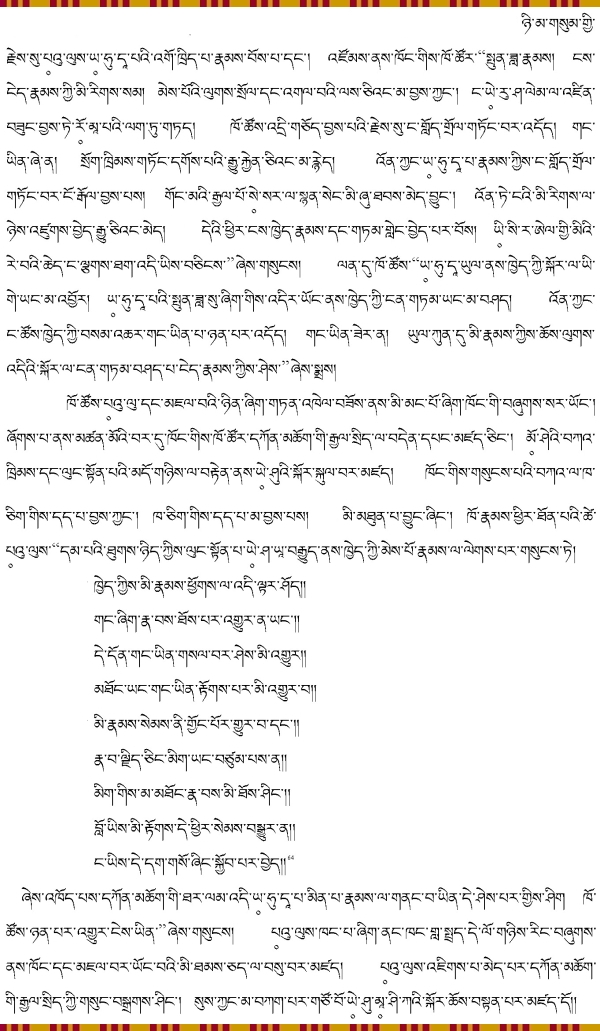 ཉི་མ་གསུམ་གྱི་
རྗེས་སུ་པཱའུ་ལུས་ཡ་ཧུ་དཱ་པའི་འགོ་ཁྲིད་པ་རྣམས་བོས་པ་དང་། འཛོམས་ནས་ཁོང་གིས་ཁོ་ཚོར་“སྤུན་ཟླ་རྣམས། ངས་
ངེད་རྣམས་ཀྱི་མི་རིགས་སམ། མེས་པོའི་ལུགས་སྲོལ་དང་འགལ་བའི་ལས་ཅིའང་མ་བྱས་ཀྱང་། ང་ཡེ་རུ་ཤ་ལེམ་ལ་འཛིན་
བཟུང་བྱས་ཏེ་རོ་མཱ་པའི་ལག་ཏུ་གཏད། ཁོ་ཚོས་འདྲི་གཅོད་བྱས་པའི་རྗེས་སུ་ང་གློད་གྲོལ་གཏོང་བར་འདོད། གང་
ཡིན་ཞེ་ན། སྲོག་ཁྲིམས་གཏོང་དགོས་པའི་རྒྱུ་རྐྱེན་ཅིའང་མ་རྙེད། འོན་ཀྱང་ཡ་ཧུ་དཱ་པ་རྣམས་ཀྱིས་ང་གློད་གྲོལ་
གཏོང་བར་ངོ་རྒོལ་བྱས་པས། གོང་མའི་རྒྱལ་པོ་སེ་སར་ལ་སྙན་སེང་མི་ཞུ་ཐབས་མེད་བྱུང་། འོན་ཏེ་ངའི་མི་རིགས་ལ་
ཉེས་འཛུགས་བྱེད་རྒྱུ་ཅིའང་མེད། དེའི་ཕྱིར་ངས་ཁྱེད་རྣམས་དང་གཏམ་གླེང་བྱེད་པར་བོས། ཡི་སི་ར་ཨེལ་གྱི་མིའི་
རེ་བའི་ཆེད་ང་ལྕགས་ཐག་འདི་ཡིས་བཅིངས་”ཞེས་གསུངས། ལན་དུ་ཁོ་ཚོས་“ཡ་ཧུ་དཱ་ཡུལ་ནས་ཁྱེད་ཀྱི་སྐོར་ལ་ཡི་
གེ་ཡང་མ་འབྱོར། ཡ་ཧུ་དཱ་པའི་སྤུན་ཟླ་སུ་ཞིག་གིས་འདིར་ཡོང་ནས་ཁྱེད་ཀྱི་ངན་གཏམ་ཡང་མ་བཤད། འོན་ཀྱང་
ང་ཚོས་ཁྱེད་ཀྱི་བསམ་འཆར་གང་ཡིན་པ་ཉན་པར་འདོད། གང་ཡིན་ཟེར་ན། ཡུལ་ཀུན་ཏུ་མི་རྣམས་ཀྱིས་ཆོས་ལུགས་
འདིའི་སྐོར་ལ་ངན་གཏམ་བཤད་པ་ངེད་རྣམས་ཀྱིས་ཤེས་”ཞེས་སྨྲས།
ཁོ་ཚོས་པཱའུ་ལུ་དང་མཇལ་བའི་ཉིན་ཞིག་གཏན་འཁེལ་བཟོས་ནས་མི་མང་པོ་ཞིག་ཁོང་གི་བཞུགས་སར་ཡོང་།
ཞོགས་པ་ནས་མཚན་མོའི་བར་དུ་ཁོང་གིས་ཁོ་ཚོར་དཀོན་མཆོག་གི་རྒྱལ་སྲིད་ལ་བདེན་དཔང་མཛད་ཅིང་། མོ་ཤེའི་བཀའ་
ཁྲིམས་དང་ལུང་སྟོན་པའི་མདོ་གཉིས་ལ་བརྟེན་ནས་ཡེ་ཤུའི་སྐོར་སྐུལ་བར་མཛད། ཁོང་གིས་གསུངས་པའི་བཀའ་ལ་ཁ་
ཅིག་གིས་དད་པ་བྱས་ཀྱང་། ཁ་ཅིག་གིས་དད་པ་མ་བྱས་པས། མི་མཐུན་པ་བྱུང་ཞིང་། ཁོ་རྣམས་ཕྱིར་ཐོན་པའི་ཚེ་
པཱའུ་ལུས་“དམ་པའི་ཐུགས་ཉིད་ཀྱིས་ལུང་སྟོན་པ་ཡེ་ཤ་ཡཱ་བརྒྱུད་ནས་ཁྱེད་ཀྱི་མེས་པོ་རྣམས་ལ་ལེགས་པར་གསུངས་ཏེ།
ཁྱེད་ཀྱིས་མི་རྣམས་ཕྱོགས་ལ་འདི་ལྟར་ཤོད།།
གང་ཞིག་རྣ་བས་ཐོས་པར་འགྱུར་ན་ཡང་།།
དེ་དོན་གང་ཡིན་གསལ་བར་ཤེས་མི་འགྱུར།།
མཐོང་ཡང་གང་ཡིན་རྟོགས་པར་མི་འགྱུར་བ།།
མི་རྣམས་སེམས་ནི་གྱོང་པོར་གྱུར་བ་དང་།།
རྣ་བ་ལྗིད་ཅིང་མིག་ཡང་བཙུམ་པས་ན།།
མིག་གིས་མ་མཐོང་རྣ་བས་མི་ཐོས་ཤིང་།།
བློ་ཡིས་མི་རྟོགས་དེ་ཕྱིར་སེམས་བསྒྱུར་ན།།
ང་ཡིས་དེ་དག་གསོ་ཞིང་སྐྱོབ་པར་བྱེད།།“
ཞེས་འཁོད་པས་དཀོན་མཆོག་གི་ཐར་ལམ་འདི་ཡ་ཧུ་དཱ་པ་མིན་པ་རྣམས་ལ་གནང་བ་ཡིན་དེ་ཤེས་པར་གྱིས་ཤིག ཁོ་
ཚོས་ཉན་པར་འགྱུར་ངེས་ཡིན་”ཞེས་གསུངས། པཱའུ་ལུས་ཁང་པ་ཞིག་ནང་ཁང་གླ་སྤྲད་དེ་ལོ་གཉིས་རིང་བཞུགས་
ནས་ཁོང་དང་མཇལ་བར་ཡོང་བའི་མི་ཐམས་ཅད་ལ་བསུ་བར་མཛད། པཱའུ་ལུས་འཇིགས་པ་མེད་པར་དཀོན་མཆོག་
གི་རྒྱལ་སྲིད་ཀྱི་གསུང་བསྒྲགས་ཤིང་། སུས་ཀྱང་མ་བཀག་པར་གཙོ་བོ་ཡེ་ཤུ་མཱ་ཤི་ཀའི་སྐོར་ཆོས་བསྟན་པར་མཛད་དོ།།